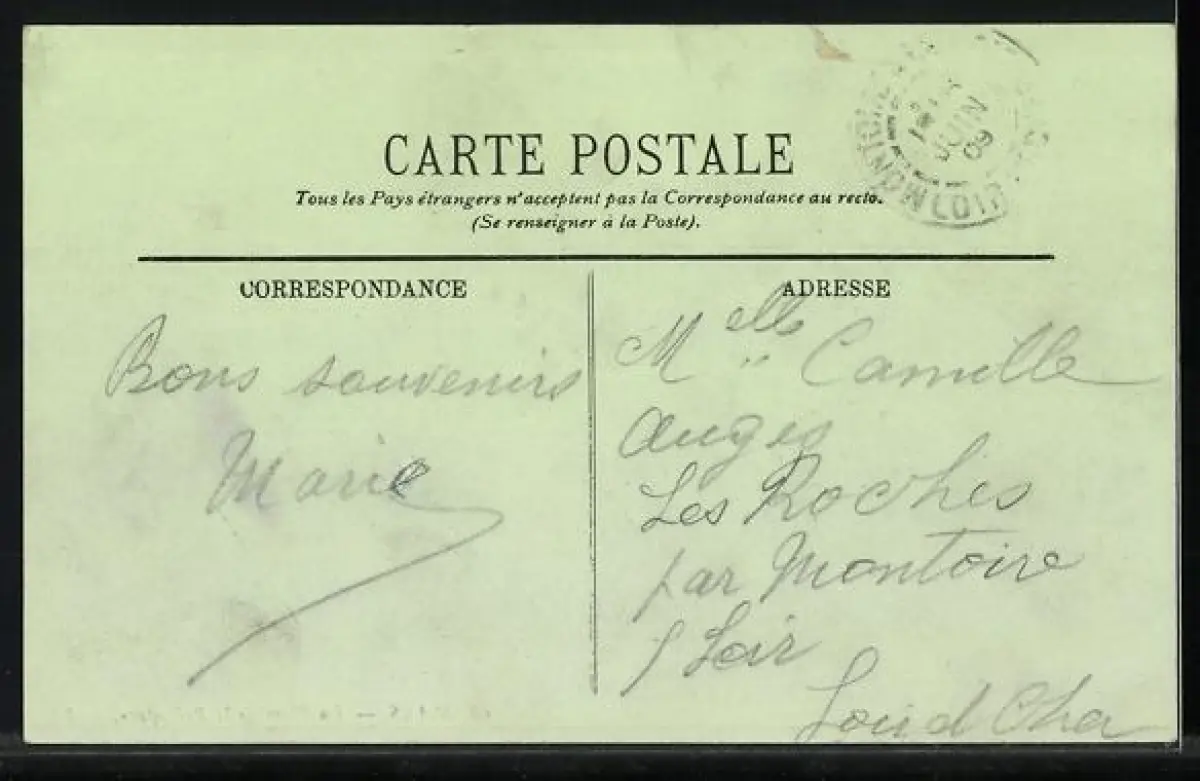 CARTE POSTALE
Tous les Pays étrangers n'acceptent pas la Correspondance au recto.
(Se renseigner à la Poste).
JUIN
09
MONTOI
LOIR
CORRESPONDANCE
Bons souvenirs
Marie
ADRESSE
Melle Camille
Auges
Les Roches
par Montoire
s/ Loir
Loir d Cher